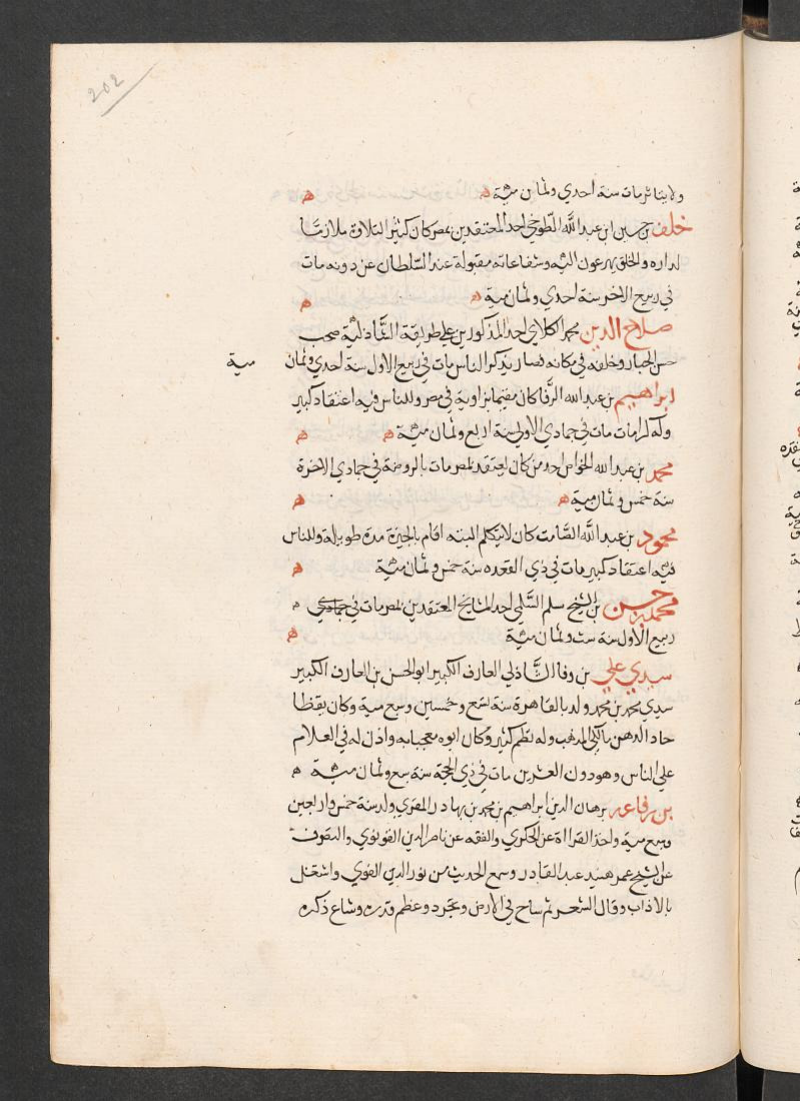 202
ولا يتاثر مات سنة احدي وثمان مئية ه ه
خلف بن حسين ابن عبد الله الطوخي احد المعتقدين بمصر كان كثير التلاوة ملازمًا
لداره والخلق يهرعون اليه وشفاعاته مقبولة عند السلطان عن دونه مات
في ربيع الاخر سنة احدي وثمان مية ه ه
صلاح الدين محمد الكلاي احد المذكورين علي طريقة الشاذلية صحب
حسن الخباز وخلفه في مكانه فصار يذكر الناس مات في ربيع الاول سنة احدي وثمان مية
ابراهيم بن عبد الله الرفا كان مقيما بزاوية في مصر وللناس فيه اعتقاد كبير
وله كرامات مات في جمادي الاولي سنة اربع وثمان مئية ه ه
محمد بن عبد الله الخواص احد من كان يعتقد بمصر مات بالروضة في جمادي الاخرة
سنة خمس وثمان مية ه ه
محمود بن عبد الله الصامت كان لا يتكلم البته اقام بالجيزة مدة طويلة وللناس
فيه اعتقاد كبير مات في ذي القعده سنة خمس وثمان مئية ه
محمد بن حسن بن الشيخ مسلم السلمي احد المشايخ المعتقدين بمصر مات في جمادي
ربيع الاول سنة ست وثمان مئية ه
سيدي علي بن وفا الشاذلي العارف الكبير ابو الحسن بن العارف الكبير
سيدي محمد بن محمد ولد بالقاهرة سنة تسع وخمسين وسبع مية وكان يقظا
حاد الذهن مالكي المذهب وله نظم كثير وكان ابوه معجبا به واذن له في الكلام
علي الناس وهو دون العشرين مات في ذي الحجة سنة سبع وثمان مئية ه
بن زقاعه برهان الدين ابراهيم بن محمد بن بهادر الغزي ولد سنة خمس واربعين
وسبع مية واخذ القراآة عن الحكري والفقه عن ناصر الدين القونوي والتصوف
عن الشيخ عمر حفيد عبد القادر وسمع الحديث من نور الدين الفوي واشتغل
بالاداب وقال الشعر ثم ساح في الارض وتجرد وعظم قدره وشاع ذكره